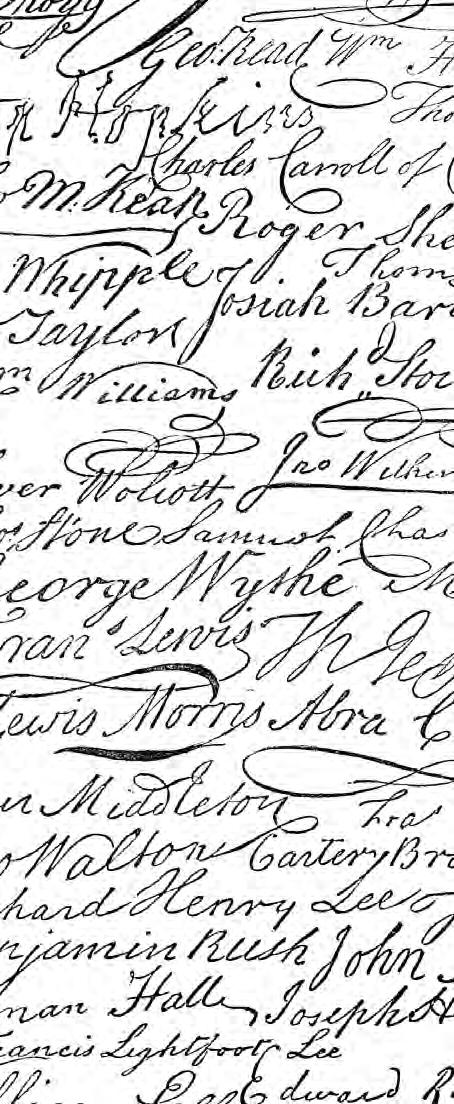 Geo. Read Wm H
Hopkins Tho
Charles Carroll of C
M:Kean Roger She
Whipple Josiah Bar
Thom
Taylor
Williams Richd Stoc
ver Wolcott Jno Wither
os Stone Samuel Chas
George Wythe M
ran s Lewis Th Jef
Lewis Morris Abra C
ur Middleton Fra
o Walton Carter Bra
hard Henry Lee
njamin Rush John
man Hall Joseph H
rancis Lightfoot Lee
Edward R